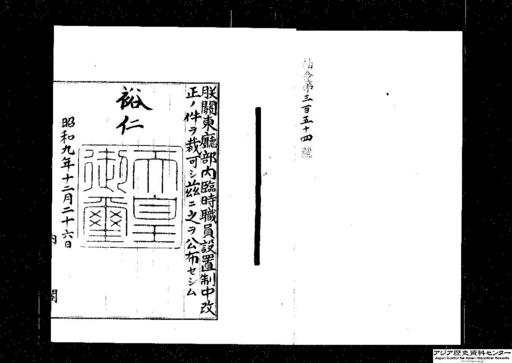 勅令第三百五十四號
朕關東廳部內臨時職員設置制中改
正ノ件ヲ裁可シ茲ニ之ヲ公布セシム
裕仁
天皇御璽
昭和九年十二月二十六日
內閣
アジア歴史資料センター
Japan Center for Asian Historical Records